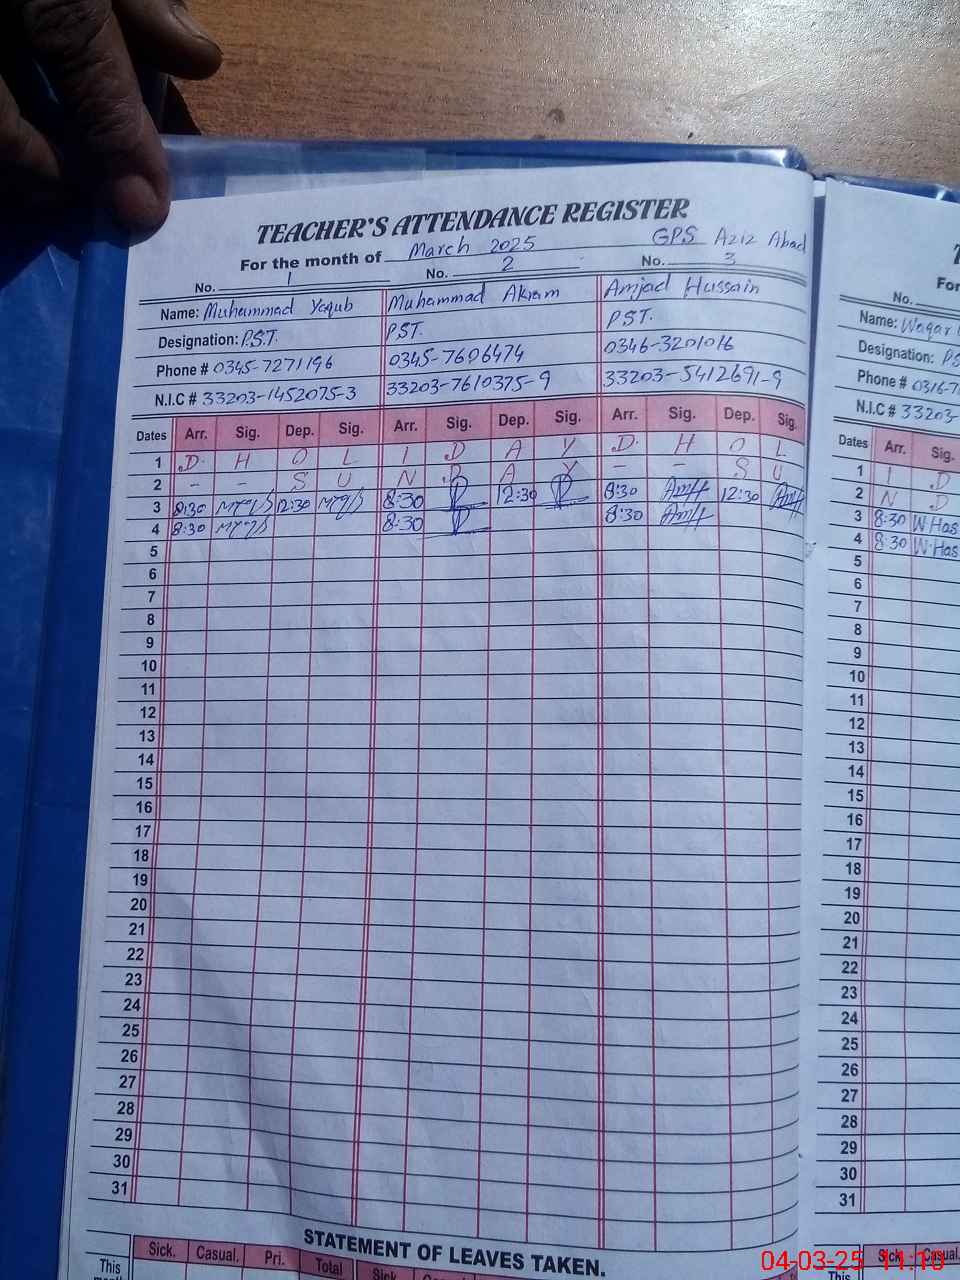 TEACHER'S ATTENDANCE REGISTER
For the month of March 2025 GPS Aziz Abad
No. 1 No. 2 No. 3
Name: Muhammad Yaqub Muhammad Akram Amjad Hussain
Designation: P.S.T. PST. PST.
Phone # 0345-7271196 0345-7606474 0346-3201016
N.I.C # 33203-1452075-3 33203-7610375-9 33203-5412691-9
Dates Arr. Sig. Dep. Sig. Arr. Sig. Dep. Sig. Arr. Sig. Dep. Sig.
1 D. H O L I D A Y D. H O L
2 - - S U N D A Y - - S U
3 8:30 12:30 8:30 12:30 8:30 12:30
4 8:30 8:30 8:30
5
6
7
8
9
10
11
12
13
14
15
16
17
18
19
20
21
22
23
24
25
26
27
28
29
30
31
STATEMENT OF LEAVES TAKEN.
Sick. Casual. Pri. Total Sick. Casual.
This
No.
Name: Waqar
Designation: PS
Phone # 0316-7
N.I.C # 33203-
Dates Arr. Sig.
1 I D
2 N D
3 8:30 W.Has
4 8:30 W.Has
5
6
7
8
9
10
11
12
13
14
15
16
17
18
19
20
21
22
23
24
25
26
27
28
29
30
31
Sick. Casual.
This
04-03-25 11:10